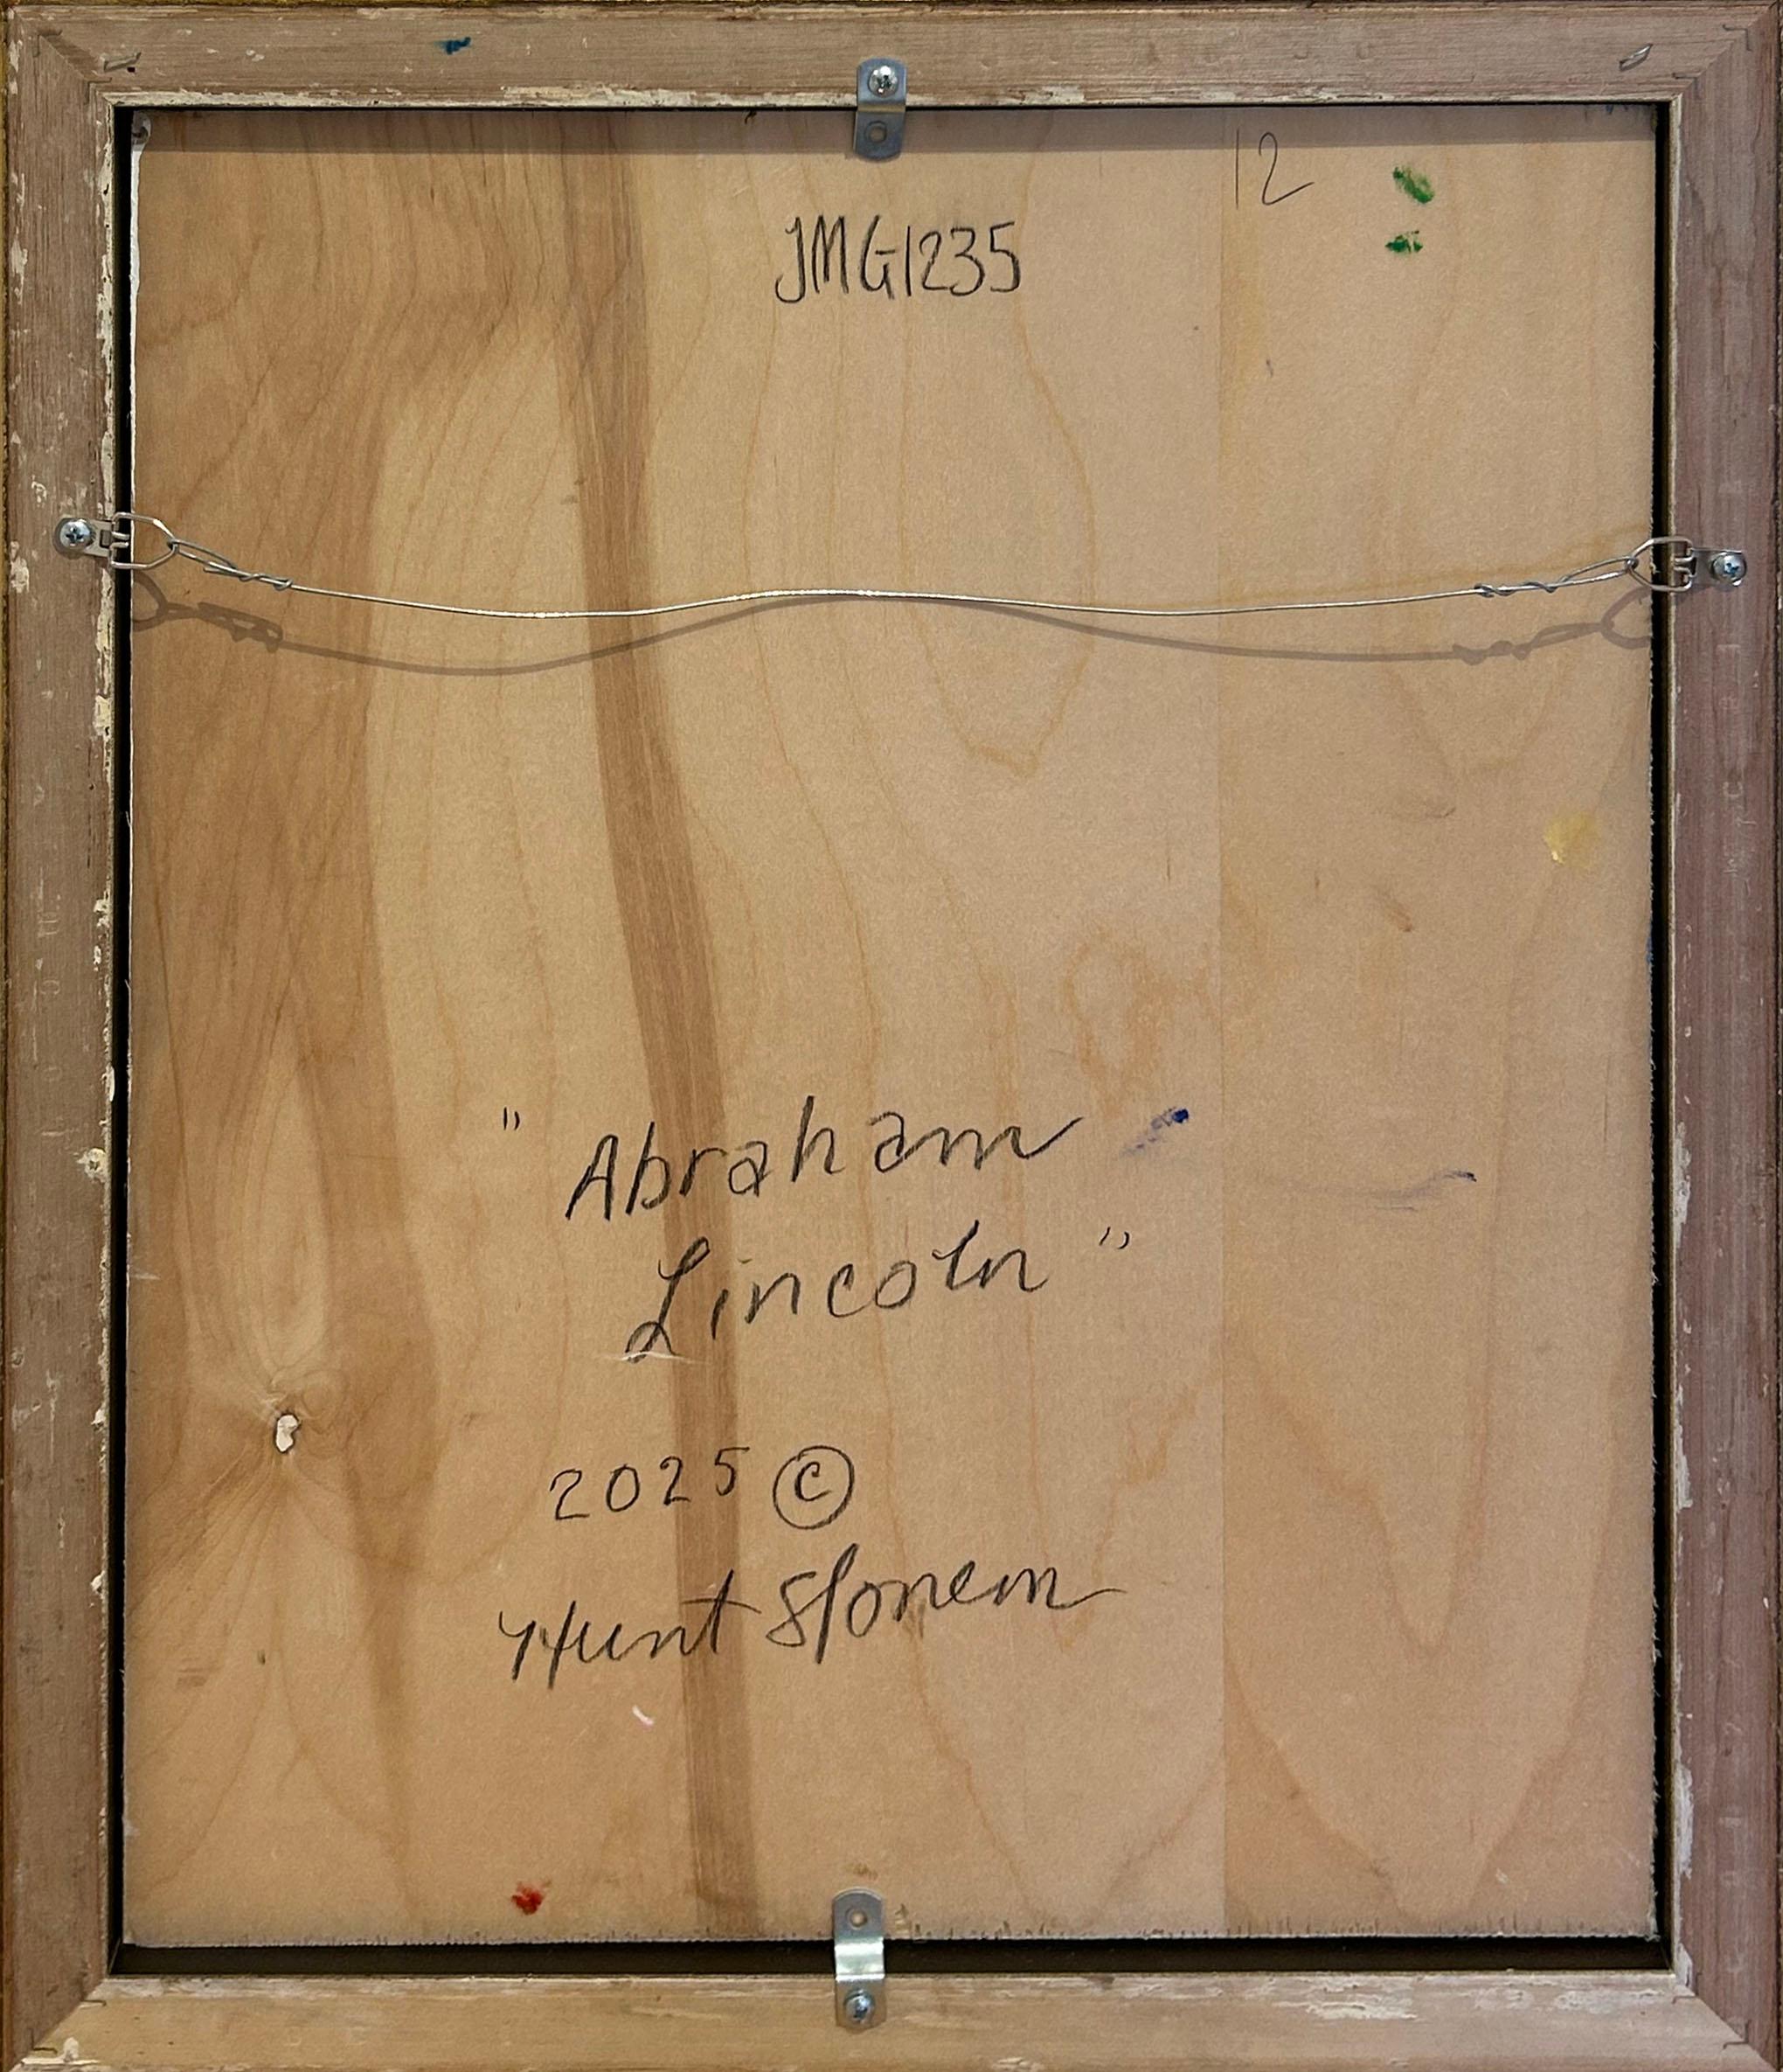 12
JMG1235
"Abraham
Lincoln"
2025 ©
Hunt Slonem